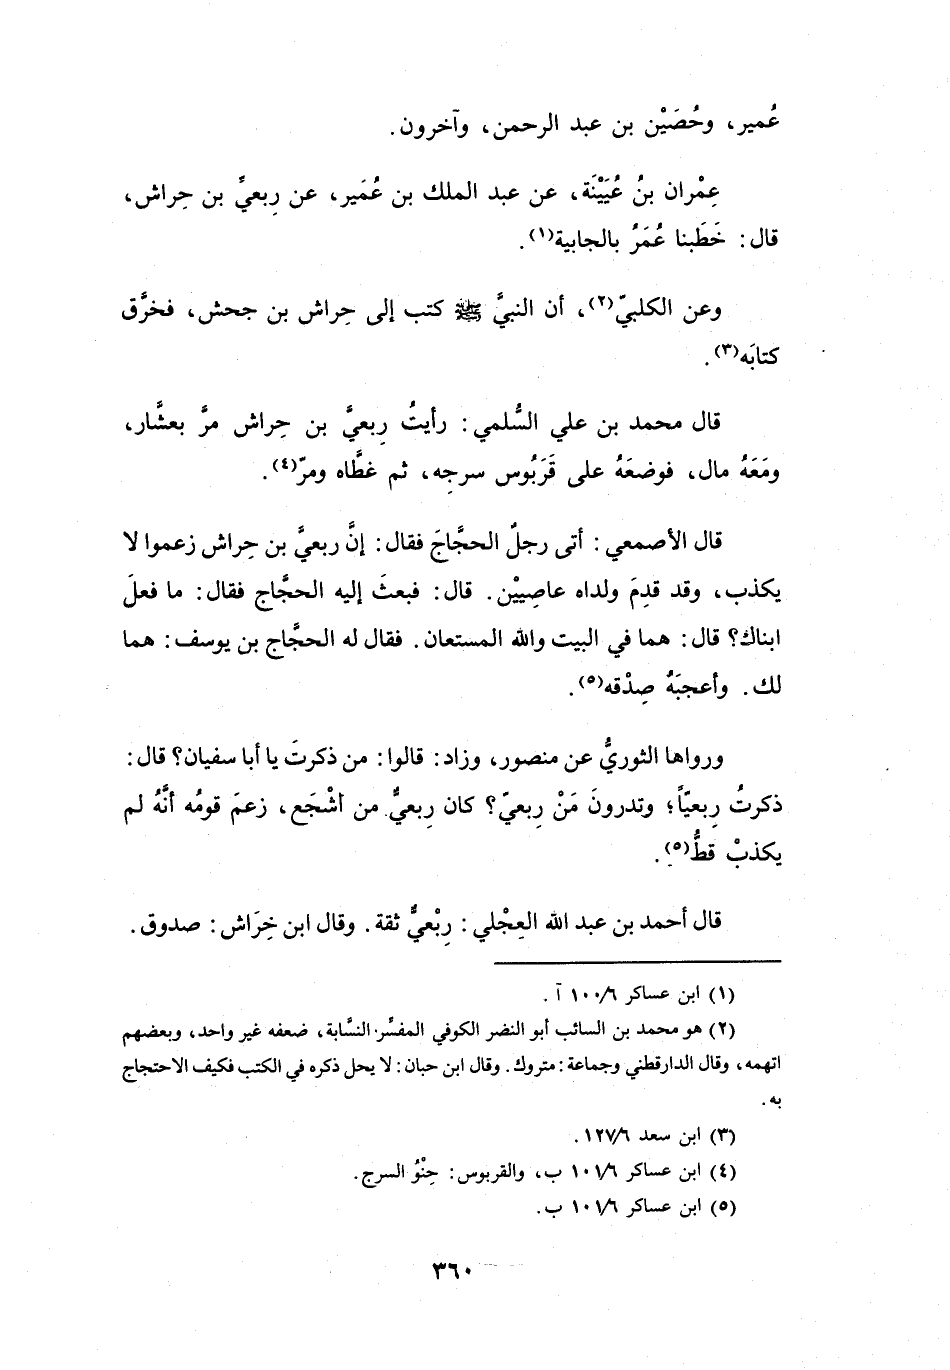 عُمير، وحُصَيْن بن عبد الرحمن، وآخرون.
عِمْران بنُ عُيَيْنَة، عن عبد الملك بن عُمَير، عن رِبعيِّ بن حِراش،
قال: خَطَبنا عُمَرُ بالجابية(١).
وعن الكلبيّ(٢)، أن النبيَّ ﷺ كتب إلى حِراش بن جحش، فخرَّق
كتابَه(٣).
قال محمد بن علي السُّلمي: رأيتُ رِبعيَّ بن حِراش مرَّ بعشَّار،
ومَعَهُ مال، فوضعَهُ على قَرَبُوس سرجِه، ثم غطَّاه ومرّ(٤).
قال الأصمعي: أتى رجلٌ الحجَّاجَ فقال: إنَّ ربعيَّ بن حِراش زعموا لا
يكذب، وقد قدِمَ ولداه عاصِييْن. قال: فبعثَ إليه الحجَّاج فقال: ما فعلَ
ابناك؟ قال: هما في البيت والله المستعان. فقال له الحجَّاج بن يوسف: هما
لك. وأعجبَهُ صِدْقه(٥).
ورواها الثوريُّ عن منصور، وزاد: قالوا: من ذكرتَ يا أبا سفيان؟ قال:
ذكرتُ رِبعيّاً؛ وتدرونَ مَنْ رِبعيّ؟ كان رِبعيٌّ من أشْجَع، زعمَ قومُه أنَّهُ لم
يكذبْ قطُّ(٥).
قال أحمد بن عبد الله العِجْلي: رِبْعيٌّ ثقة. وقال ابن خِرَاش: صدوق.
(١) ابن عساكر ١٠٠/٦ آ.
(٢) هو محمد بن السائب أبو النضر الكوفي المفسِّر النسَّابة، ضعفه غير واحد، وبعضهم
اتهمه، وقال الدارقطني وجماعة: متروك. وقال ابن حبان: لا يحل ذكره في الكتب فكيف الاحتجاج
به.
(٣) ابن سعد ١٢٧/٦.
(٤) ابن عساكر ١٠١/٦ ب، والقربوس: حِنْوُ السرج.
(٥) ابن عساكر ١٠١/٦ ب.
٣٦٠